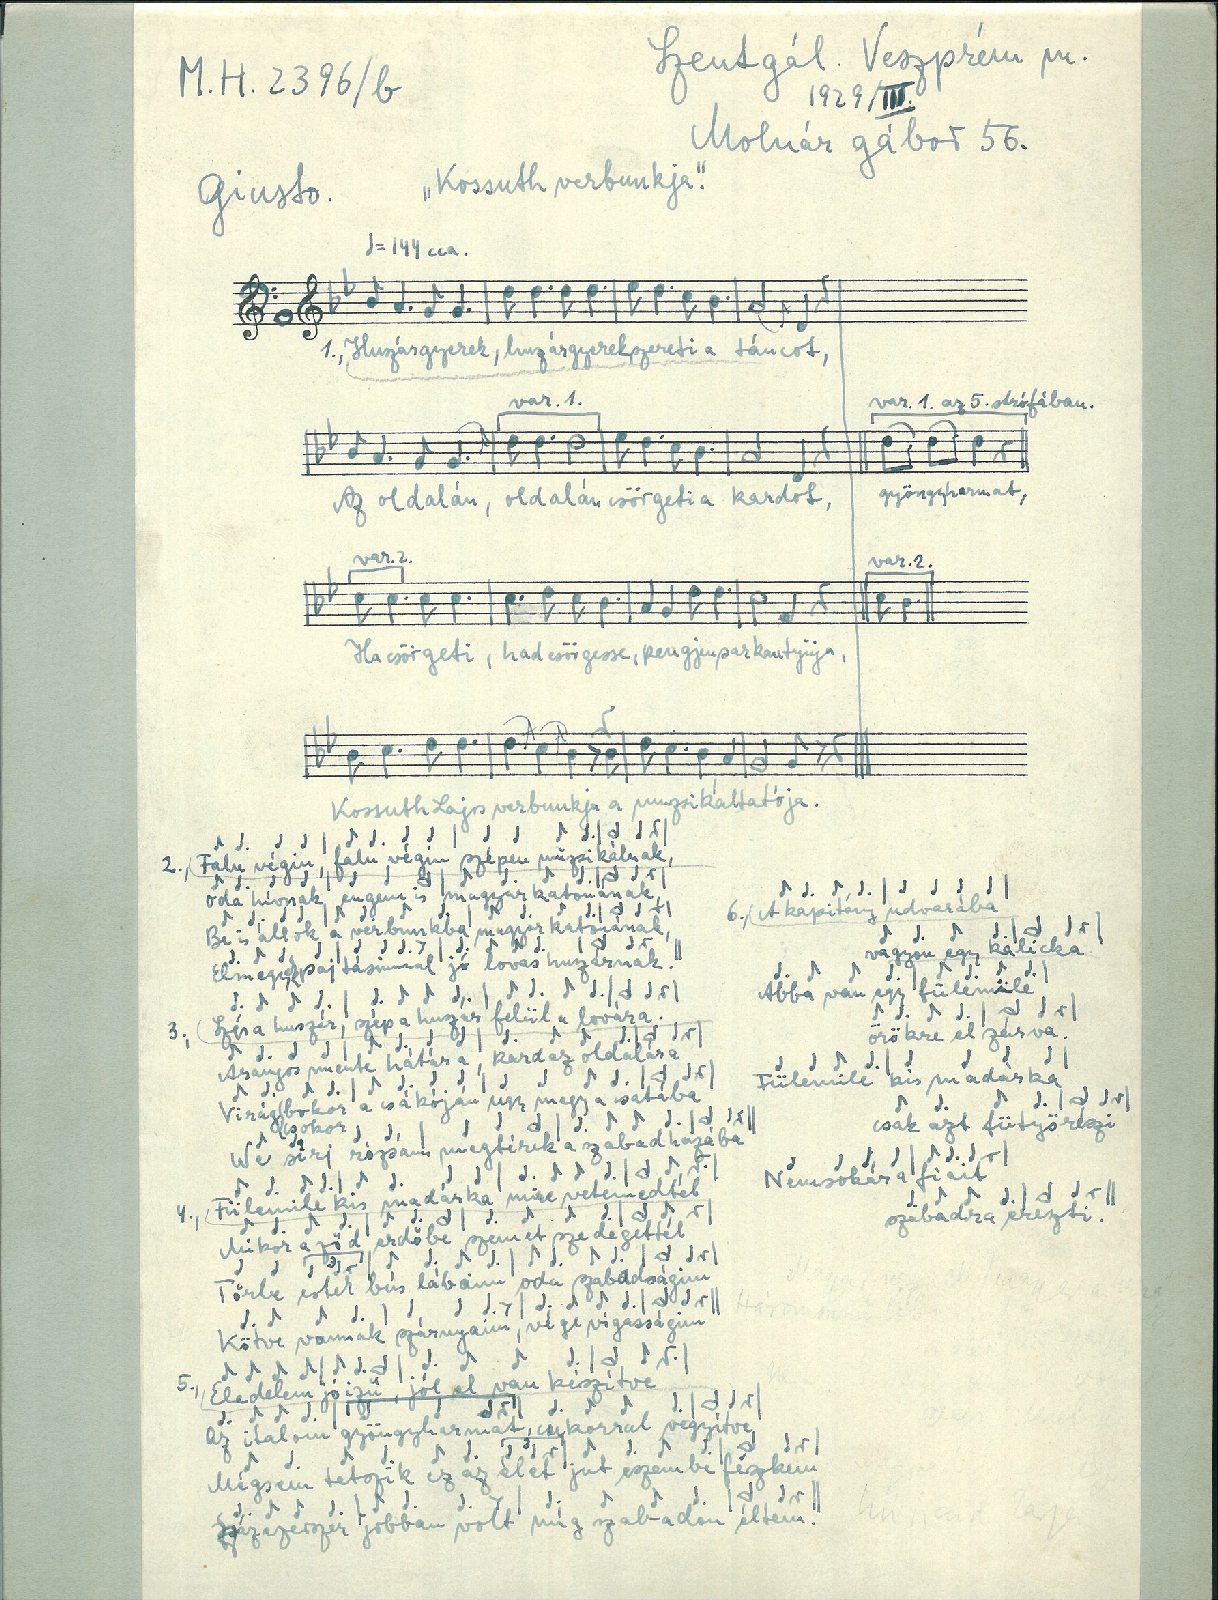 M.H. 2396/b
Szentgál. Veszprém m.
1929/III.
Molnár Gábor 56.
Giusto.
„Kossuth verbunkja".
♩= 144 cca.
1., Huszárgyerek, huszárgyerek szereti a táncot,
var. 1.
var. 1. az 5. strófában.
Az oldalán, oldalán csörgeti a kardot,
gyöngyharmat,
var. 2.
var. 2.
Ha csörgeti, had csörgesse, pengjen sarkantyúja,
Kossuth Lajos verbunkja a muzsikáltatója.
2., Falu végin, falu végin szépen muzsikálnak,
oda hívnak engem is magyar katonának,
Be is állok a verbunkba magyar katonának,
Elmegyek pajtásimmal jó lovas huszárnak.
3., Szép a huszár, szép a huszár felül a lovára.
Aranyos mente hátára, kard az oldalára
Virágbokor a csákóján ugy megy a csatába
csokor
Ne sírj rózsám megtérek a szabad hazába
4., Fülemile kis madárka mire vetemedtél
Mikor a zöd erdőbe szemet szedegettél
Tőrbe estek bús lábaim oda szabadságim
Kötve vannak szárnyaim, vége vigasságim
5., Eledelem jóizű, jól el van készítve
Az italom gyöngyharmat, cukorral vegyítve
Mégsem tetszik ez az élet jut eszembe fészkem
Százezerszer jobban volt míg szabadon éltem.
6., A kapitány udvarába
vagyon egy kalicka
Abba van egy fülemile
örökre el zárva.
Fülemile kis madárka
csak azt fütyörészi
Nemsokára fiait
szabadra ereszti.